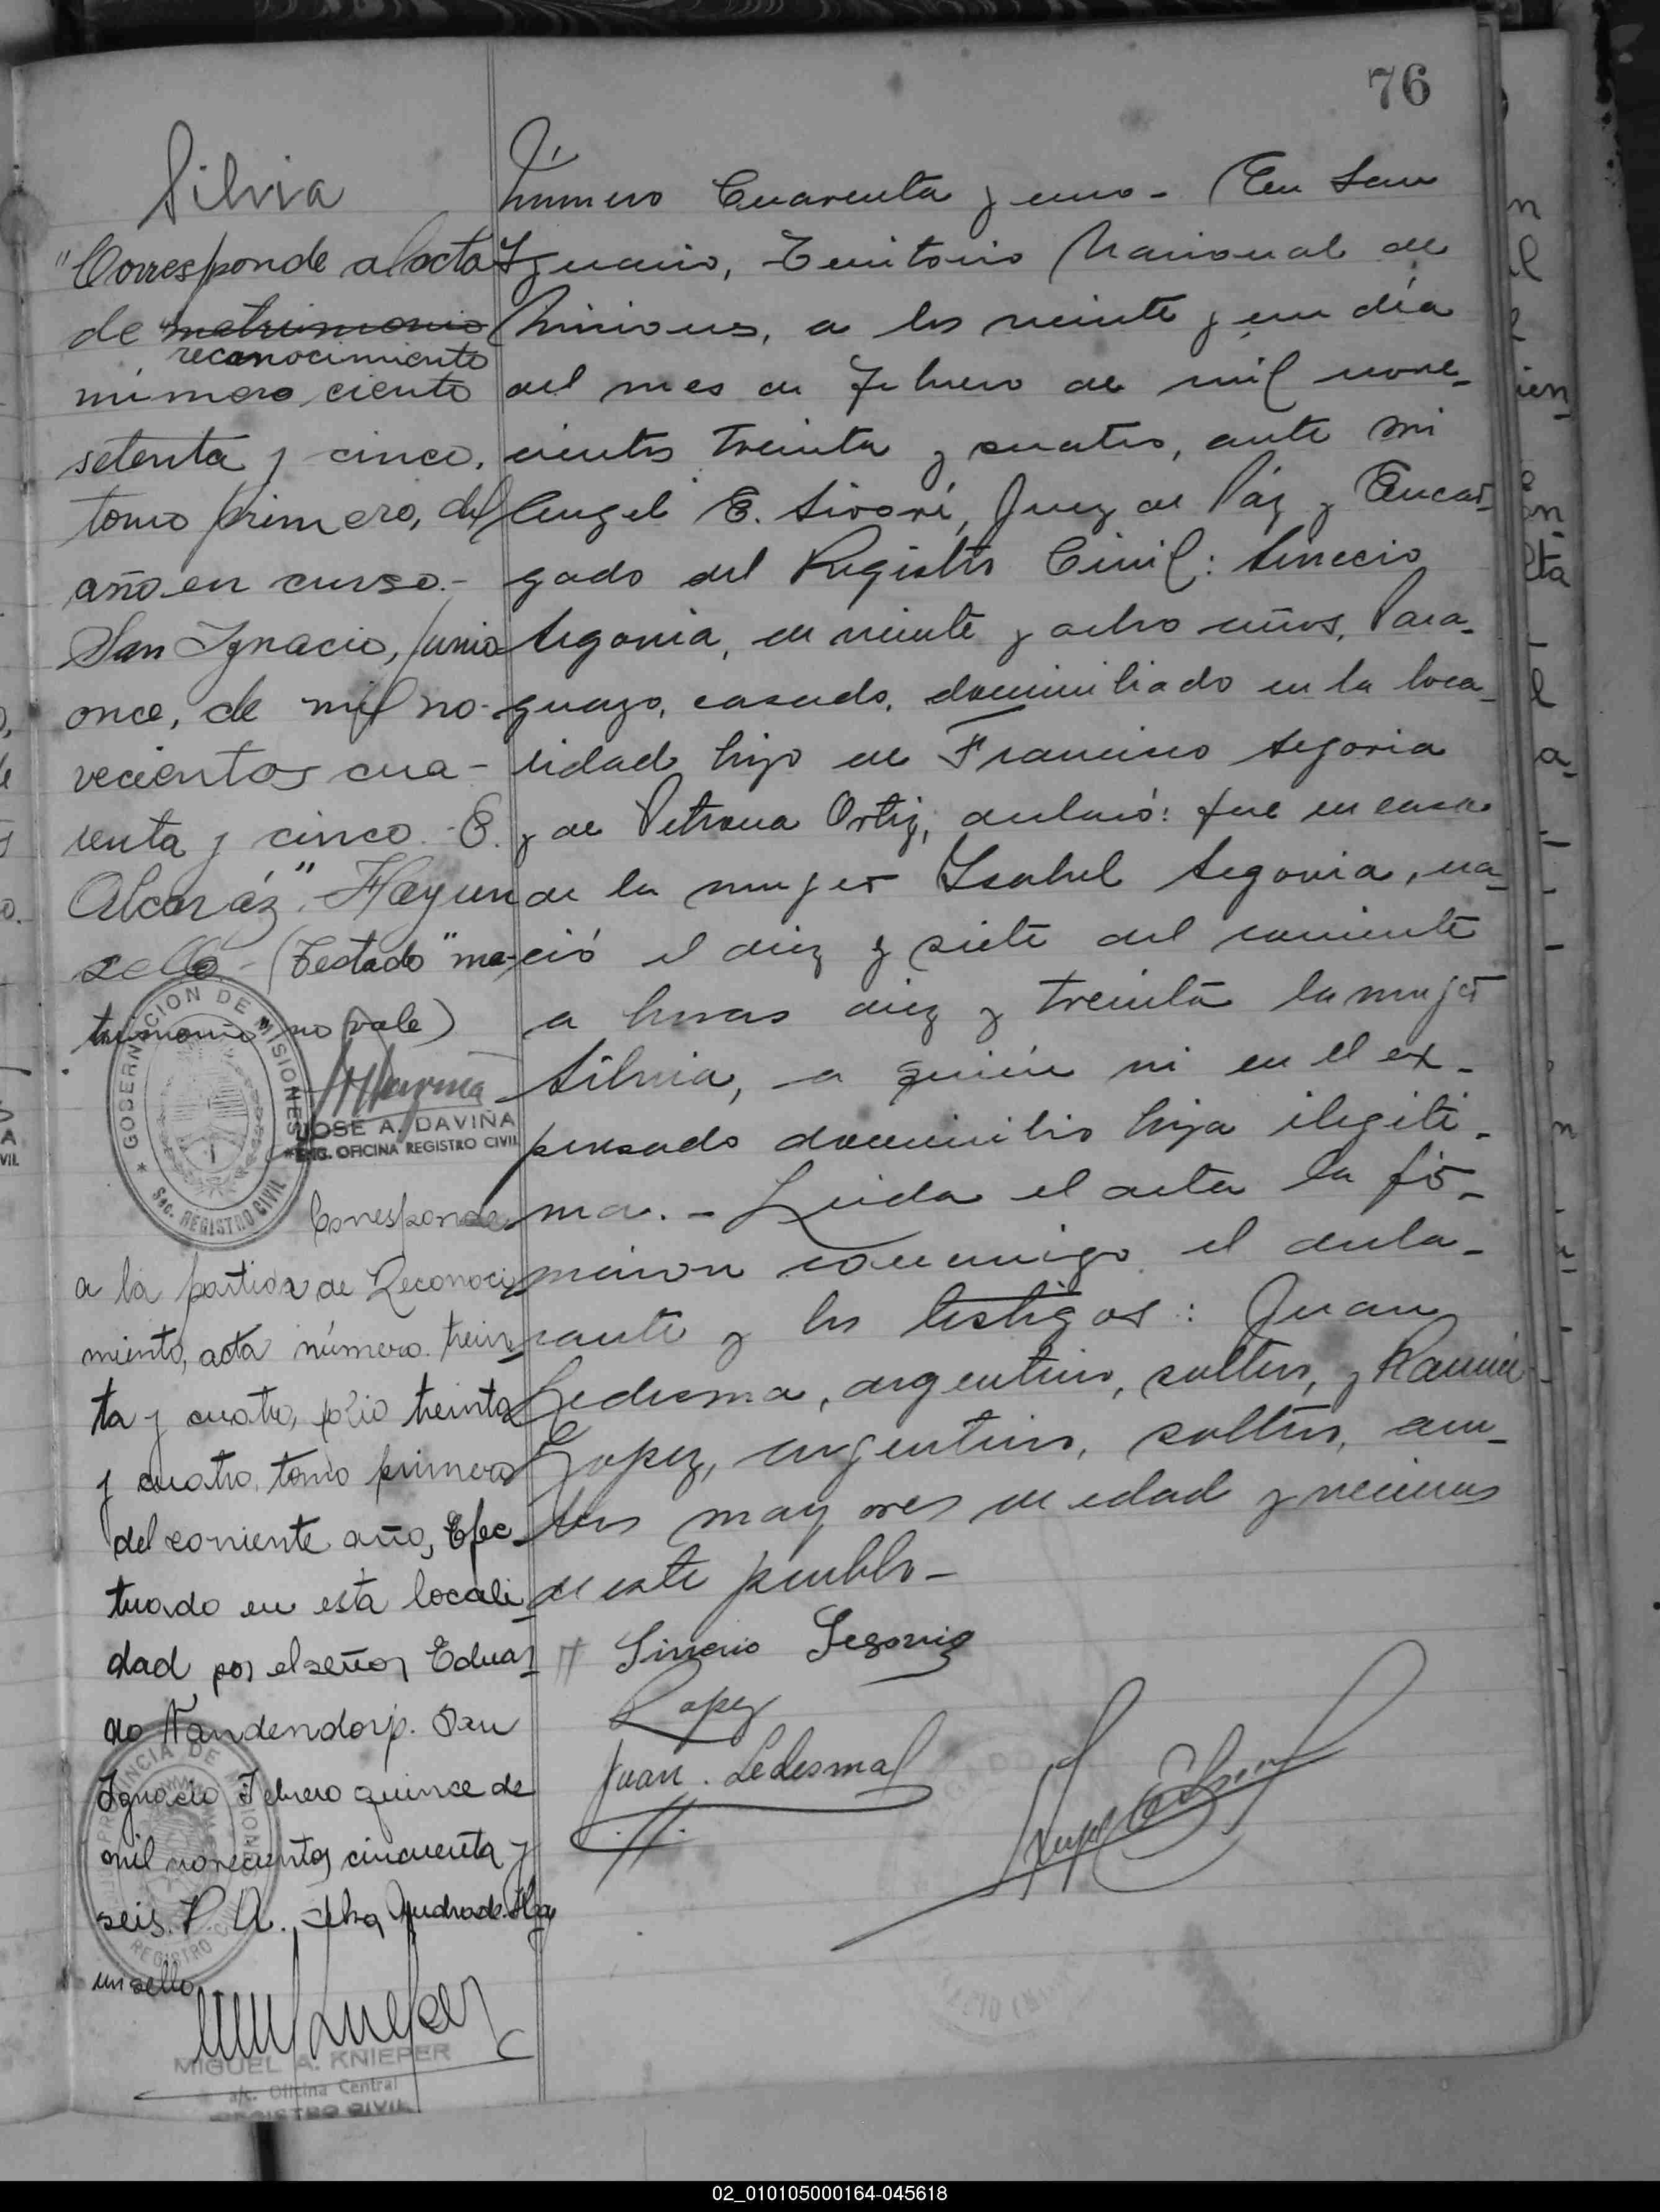 76
Silvia
"Corresponde al acta
de matrimonio
reconocimiento
número ciento
setenta y cinco,
tomo primero, del
año en curso.-
San Ignacio, junio
once, de mil no-
vecientos cua-
renta y cinco.- E.
Alcaráz". Hay un
sello.- (Testado "ma-
trimonio" no vale)
GOBERNACION DE MISIONES
Sec. REGISTRO CIVIL
JOSE A. DAVIÑA
ENC. OFICINA REGISTRO CIVIL
Corresponde
a la partida de Reconoci
miento, acta número trein
ta y cuatro, folio treinta
y cuatro, tomo primero
del corriente año, Efec-
tuado en esta locali-
dad por el señor Eduar-
do Vandendorp. San
Ignacio Febrero quince de
mil novecientos cincuenta y
seis. P. A. Andrade. Hay
un sello.
PROVINCIA DE MISIONES
REGISTRO CIVIL
MIGUEL A. KNIEPER
a/c. Oficina Central
REGISTRO CIVIL
Número Cuarenta y uno - En San
Ygnacio, Territorio Nacional de
Misiones, a los veinte y un día
del mes de Febrero de mil nove-
cientos treinta y cuatro, ante mi
Angel E. Sivori, Juez de Páz y Encar-
gado del Registro Civil: Sinecio
Segovia, de veinte y ocho años, Para-
guayo, casado, domiciliado en la loca-
lidad hijo de Francisco Segovia
y de Petrona Ortiz, declaró: que en casa
de la mujer Ysabel Segovia, na-
ció el diez y siete del corriente
a horas diez y treinta la mujer
Silvia, a quién vi en el ex-
presado domicilio hija ilegiti-
ma. - Leida el acta la fir-
maron conmigo el decla-
rante y los testigos: Juan
Ledesma, argentino, soltero, y Ramón
Lopez, argentino, soltero, am-
bos mayores de edad y vecinos
de este pueblo -
Sinecio Segovia
R Lopez
Juan. Ledesma
02_010105000164-045618